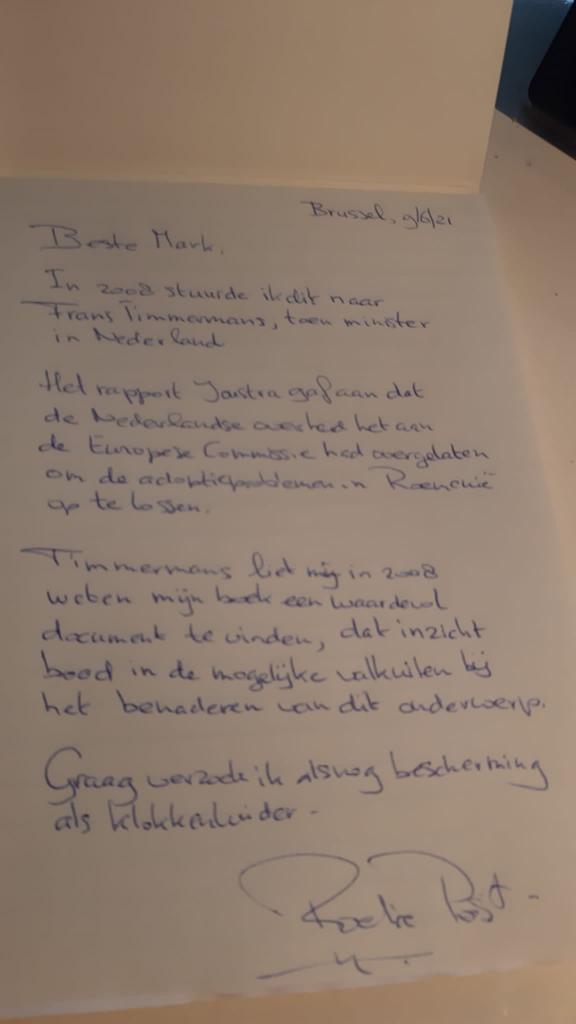 Brussel, 9/6/21
Beste Mark,
In 2008 stuurde ik dit naar
Frans Timmermans, toen minster
in Nederland
Het rapport Joustra gaf aan dat
de Nederlandse overheid het aan
de Europese Commissie had overgelaten
om de adoptieproblemen in Roemenië
op te lossen.
Timmermans liet mij in 2008
weten mijn boek een waardevol
document te vinden, dat inzicht
bood in de mogelijke valkuilen bij
het benaderen van dit onderwerp.
Graag verzoek ik alsnog bescherming
als klokkenluider.
Roelie Post